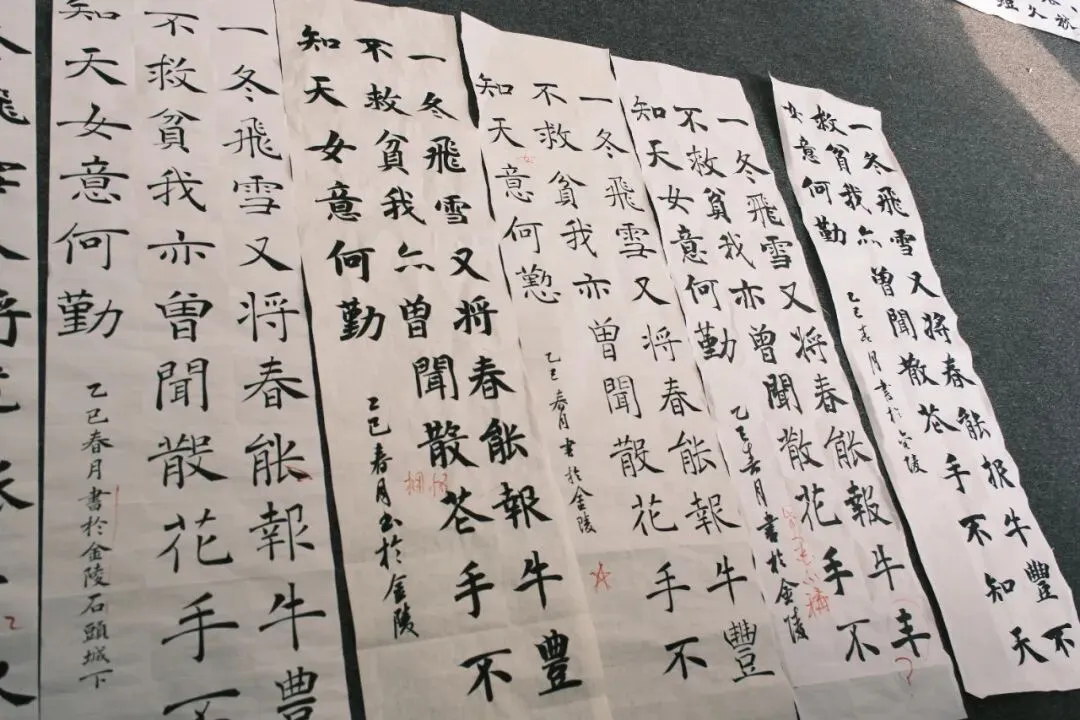 一冬飛雪又将春能报牛豐不
救貧我亦曾聞散花手不知天
女意何勤
乙巳春月書於金陵
一冬飛雪又将春能報牛丰
不救貧我亦曾聞散花手不
知天女意何勤
乙巳春月書於金陵
一冬飛雪又将春能報牛豐
不救貧我亦曾聞散花手不
知天女意何懃
乙巳春月書於金陵
一冬飛雪又将春能報牛豐
不救貧我亦曾聞散花手不
知天女意何勤
乙巳春月书於金陵
一冬飛雪又将春能報牛豐
不救貧我亦曾聞散花手不
知天女意何勤
乙巳春月書於金陵石頭城下